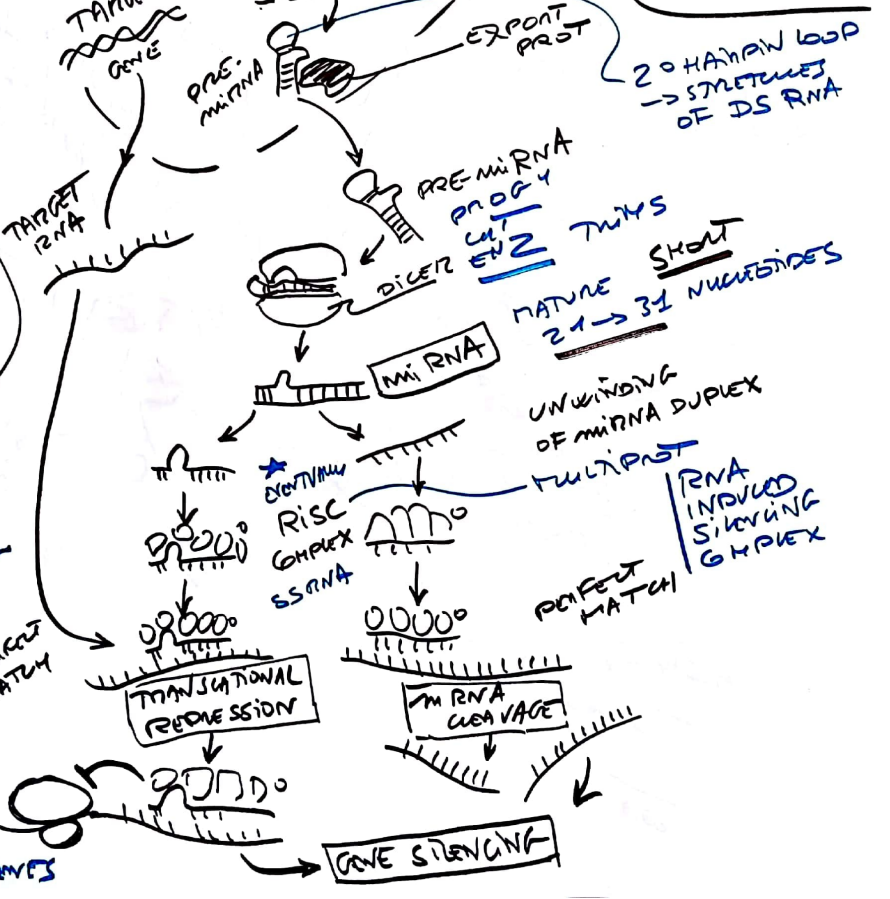 TARGET
GENE
PRE-
miRNA
EXPORT
PROT
2° HAIRPIN LOOP
→ STRETCHES
OF DS RNA
TARGET
RNA
PRE-miRNA
CUT
ENZ
TRIMS
DICER
MATURE SHORT
21 → 31 NUCLEOTIDES
miRNA
UNWINDING
OF miRNA DUPLEX
EVENTUALLY
RISC
COMPLEX
SSRNA
MULTIPROT
RNA
INDUCED
SILENCING
COMPLEX
PERFECT
MATCH
TRANSLATIONAL
REPRESSION
mRNA
CLEAVAGE
GENE SILENCING